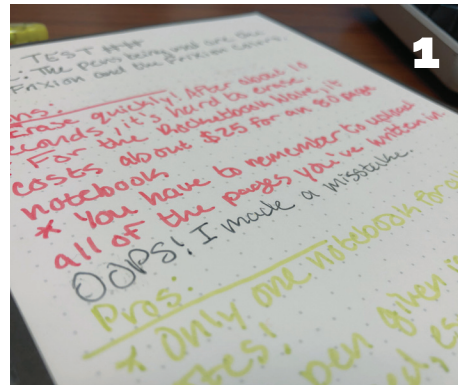 1
TEST ##
: The pens being used are the
Frixion and the Frixion Colors.
ons:
Erase quickly! After about 10
econds, it's hard to erase.
For the Rocketbook Wave, it
costs about $25 for an 80 page
notebook
* You have to remember to upload
all of the pages you've written in.
OOPS! I made a misstake.
Pros:
* Only one notebook for all
tes!
pen given
ed, es